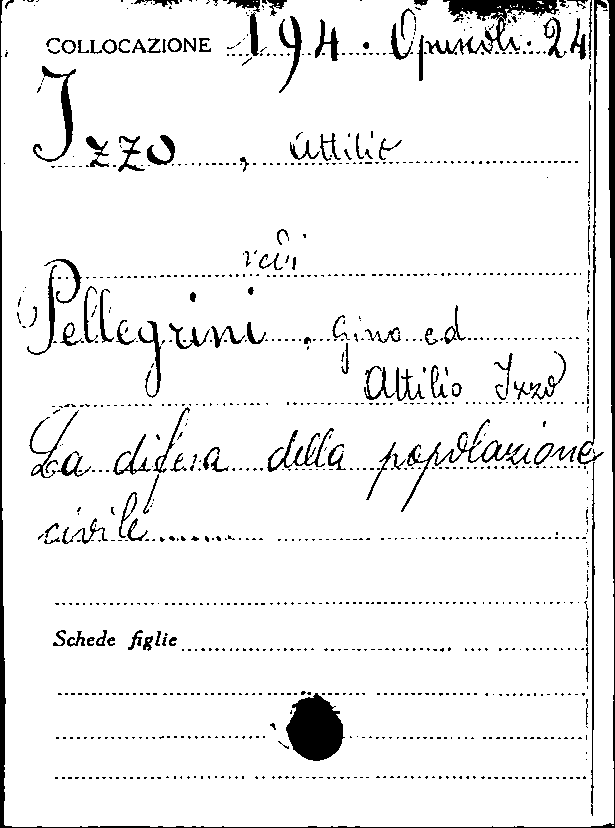 COLLOCAZIONE 194. Opuscoli. 24
Izzo, Attilio
vedi
Pellegrini, Gino ed
Attilio Izzo
La difesa della popolazione
civile........
Schede figlie